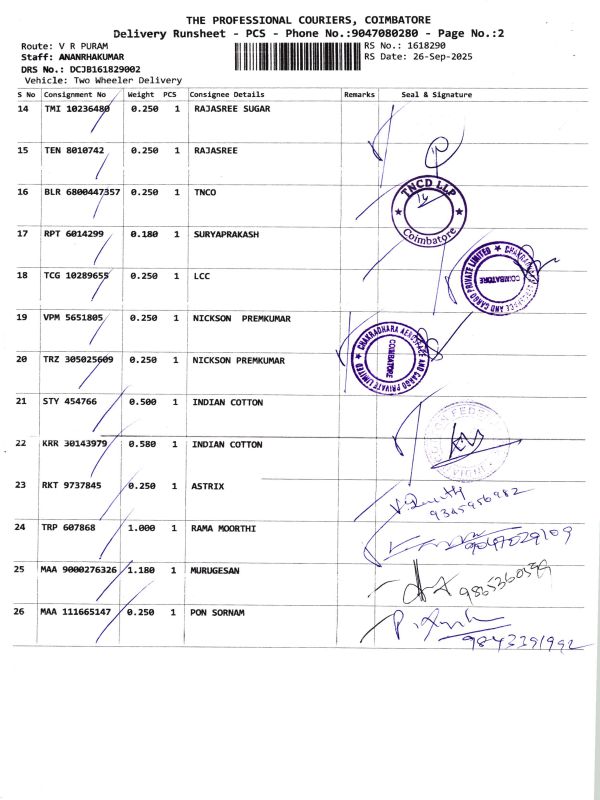 THE PROFESSIONAL COURIERS, COIMBATORE
Delivery Runsheet - PCS - Phone No.:9047080280 - Page No.:2
Route: V R PURAM
RS No.: 1618290
Staff: ANANRHAKUMAR
RS Date: 26-Sep-2025
DRS No.: DCJB161829002
Vehicle: Two Wheeler Delivery
S No Consignment No Weight PCS Consignee Details Remarks Seal & Signature
14 TMI 10236480 0.250 1 RAJASREE SUGAR
15 TEN 8010742 0.250 1 RAJASREE
16 BLR 6800447357 0.250 1 TNCO
TNCD LLP
14
Coimbatore
17 RPT 6014299 0.180 1 SURYAPRAKASH
18 TCG 10289655 0.250 1 LCC
COIMBATORE
19 VPM 5651805 0.250 1 NICKSON PREMKUMAR
20 TRZ 305025609 0.250 1 NICKSON PREMKUMAR
CHAKRADHARA AEROSPACE AND CARGO PRIVATE LIMITED
COIMBATORE
21 STY 454766 0.500 1 INDIAN COTTON
22 KRR 30143979 0.580 1 INDIAN COTTON
23 RKT 9737845 0.250 1 ASTRIX
9345956982
24 TRP 607868 1.000 1 RAMA MOORTHI
9047029109
25 MAA 9000276326 1.180 1 MURUGESAN
26 MAA 111665147 0.250 1 PON SORNAM
9843391992